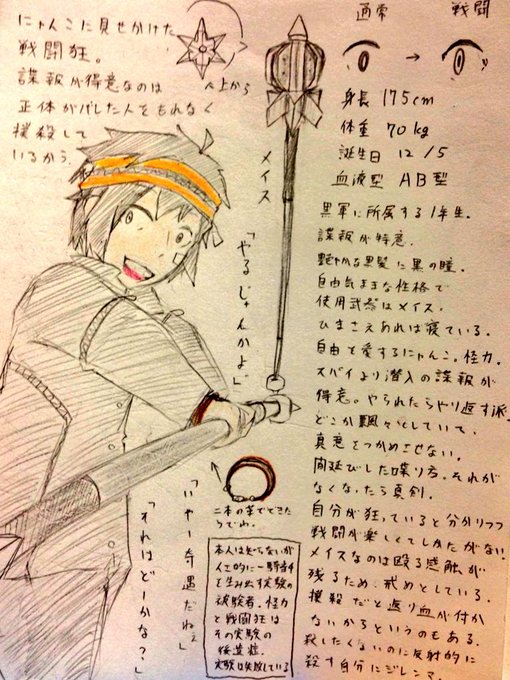 にゃんこに見せかけた
戦闘狂。
諜報が得意なのは
正体がバレた人をもれなく
撲殺して
いるから。
上から
メイス
通常
戦闘
身長 175cm
体重 70kg
誕生日 12/5
血液型 AB型
黒軍に所属する1年生。
諜報が特意。
艶やかな黒髪に黒の瞳。
自由気ままな性格で
使用武器はメイス。
ひまさえあれば寝ている。
自由を愛するにゃんこ。怪力。
スパイより潜入の諜報が
得意。やられたらやり返す派。
どこか飄々としていて、
真意をつかめさせない。
間延びした喋り方。それが
なくなったら真剣。
自分が狂っていると分かりつつ
戦闘が楽しくてしかたがない。
メイスなのは殴る感触が
残るため、戒めとしている。
撲殺だと返り血が付か
ないからというのもある。
殺したくないのに反射的に
殺す自分にジレンマ。
「やるじゃんかよ」
「いやー奇遇だねぇ」
「それはどーかな?」
二本の革でできた
うでわ。
本人は知らないが
人工的に一騎当千
を生み出す実験の
被験者。怪力
と戦闘狂は
その実験の
後遺症。
実験は失敗している